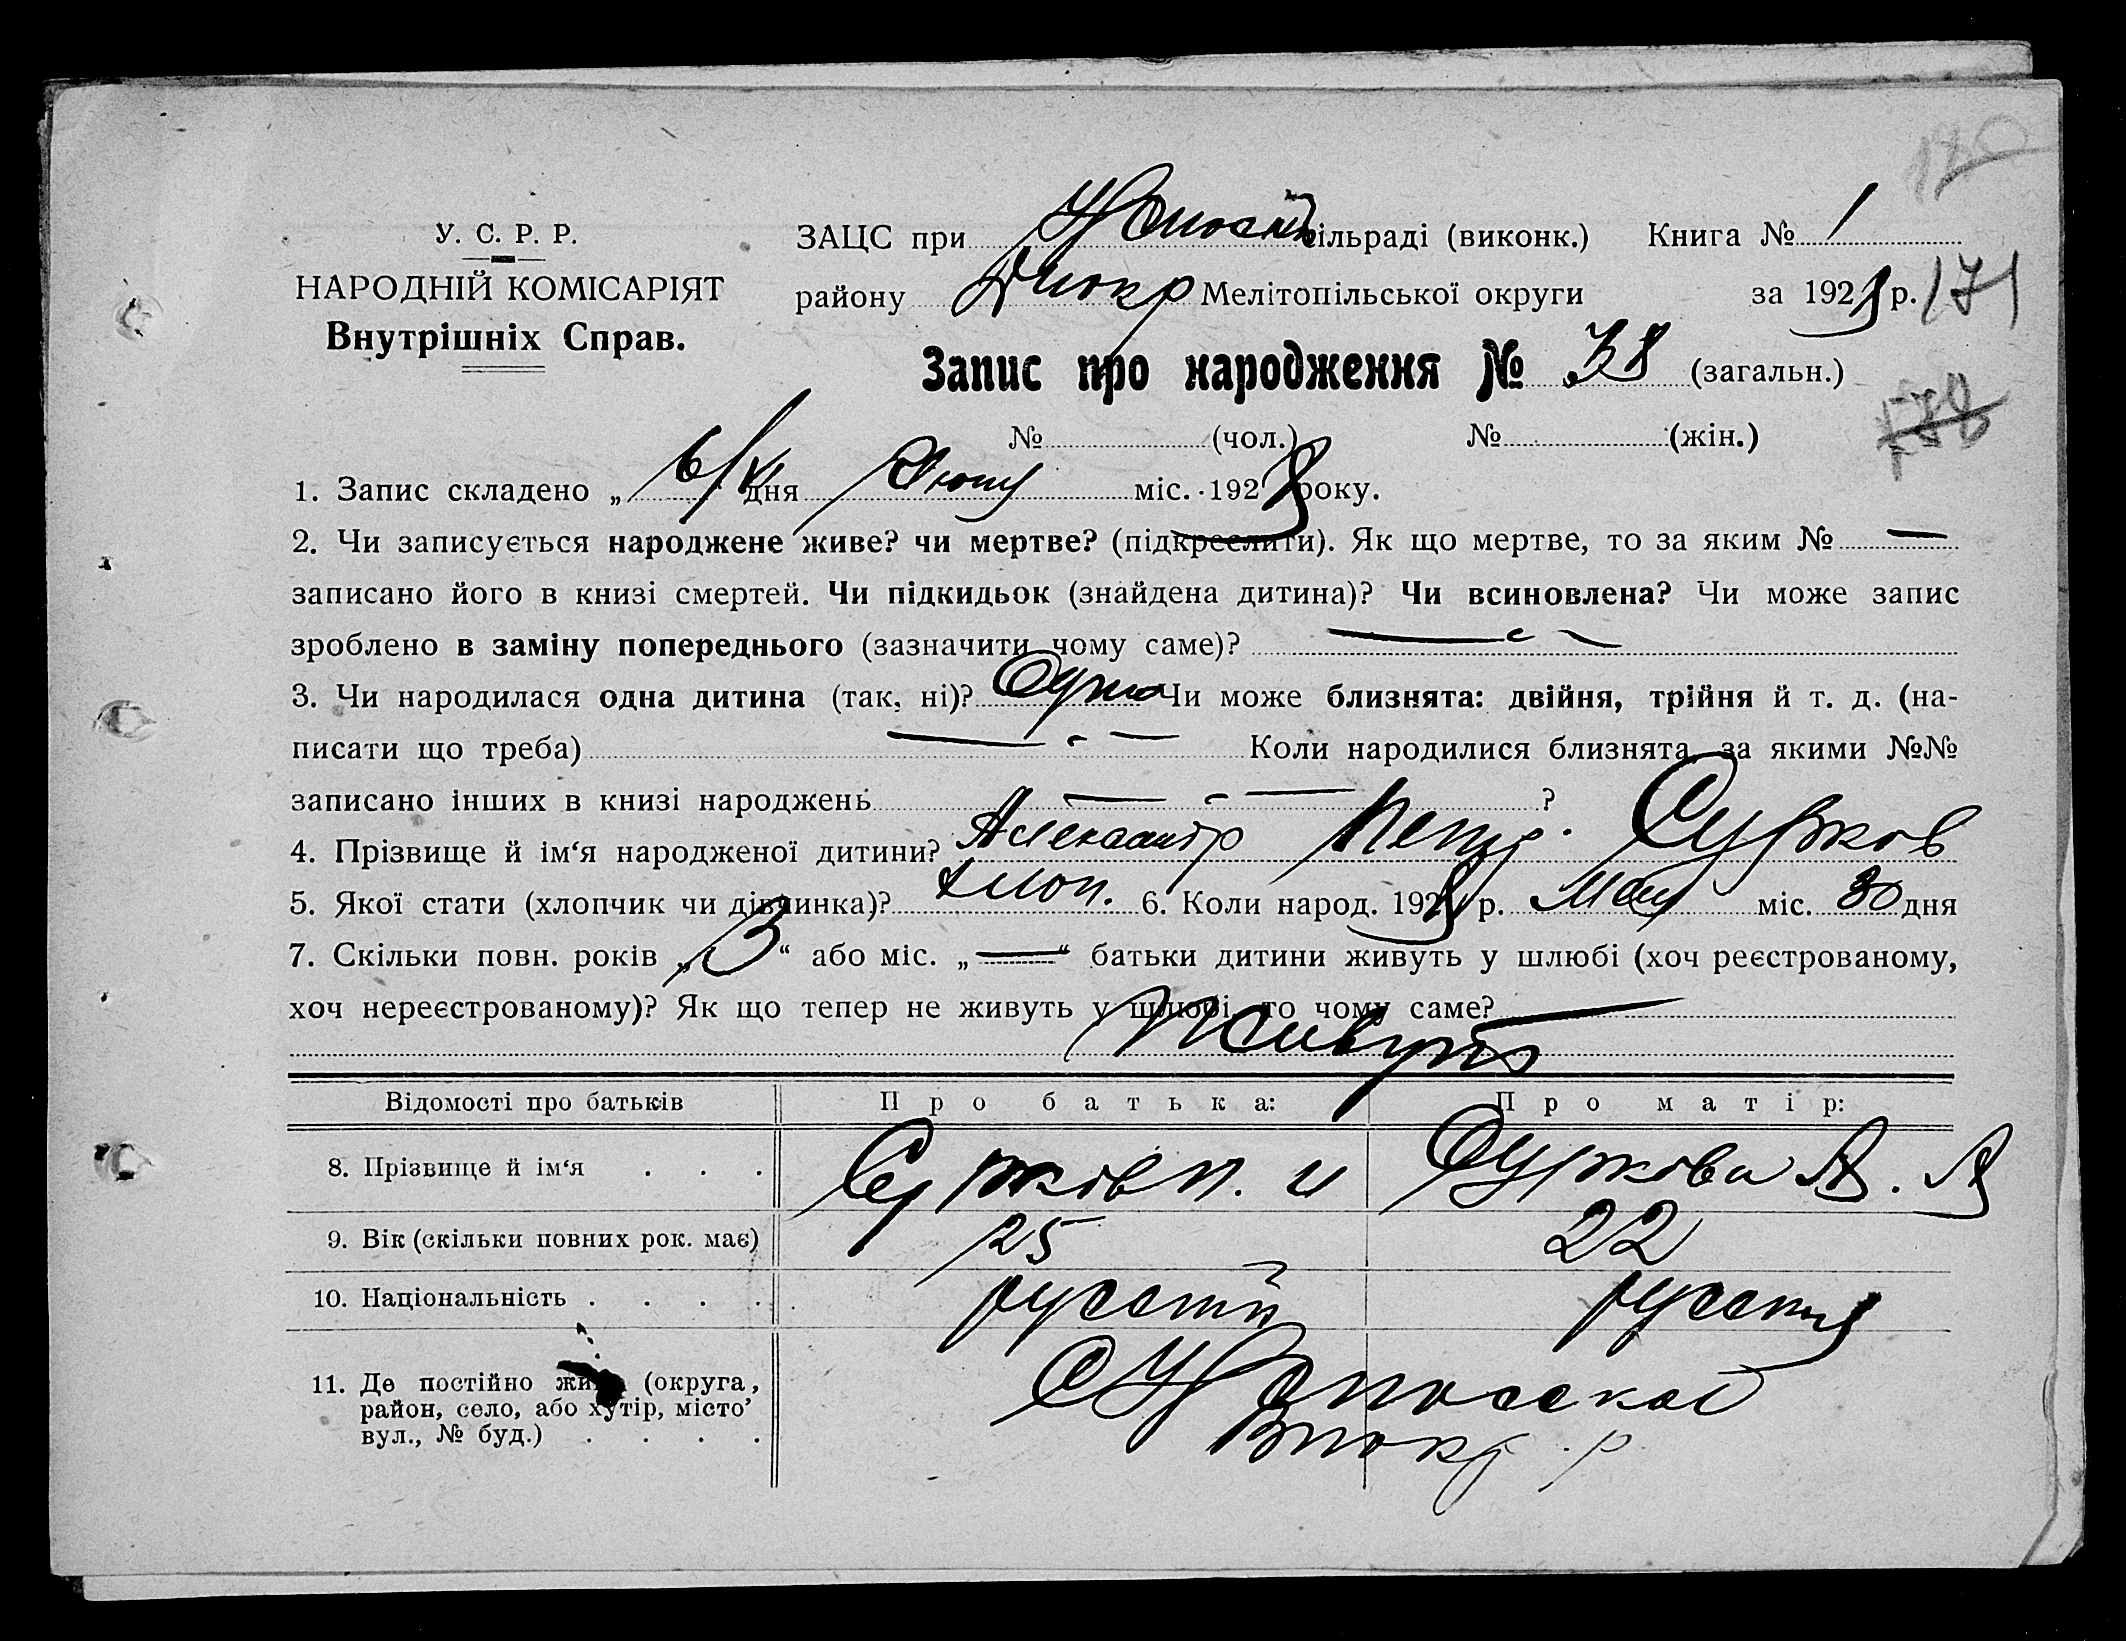 180
У. С. Р. Р.
НАРОДНІЙ КОМІСАРІЯТ
Внутрішніх Справ.
ЗАЦС при сільраді (виконк.) Книга № 1
району Мелітопільської округи за 1928 р. 171
Запис про народження № 38 (загальн.)
№ (чол.) № (жін.)
1. Запис складено „ 6/ дня міс. 1928 року.
2. Чи записується народжене живе? чи мертве? (підкреслити). Як що мертве, то за яким № —
записано його в книзі смертей. Чи підкидьок (знайдена дитина)? Чи всиновлена? Чи може запис
зроблено в заміну попереднього (зазначити чому саме)?
3. Чи народилася одна дитина (так, ні)? Одна Чи може близнята: двійня, трійня й т. д. (на-
писати що треба) Коли народилися близнята, за якими №№
записано інших в книзі народжень ?
4. Прізвище й ім‘я народженої дитини? Александр Петр. Сурков
5. Якої стати (хлопчик чи дівчинка)? хлоп. 6. Коли народ. 1928 р. Мая міс. 30 дня
7. Скільки повн. років „ 3 “ або міс. „ — “ батьки дитини живуть у шлюбі (хоч реєстрованому,
хоч нереєстрованому)? Як що тепер не живуть у шлюбі, то чому саме?
Живуть
Відомости про батьків Про батька: Про матір:
8. Прізвище й ім‘я . . . Сурков П. И Суркова А. А
9. Вік (скільки повних рок. має) 25 22
10. Національність . . . . русский русская
11. Де постійно живе (округа,
район, село, або хутір, місто,
вул., № буд.) . . . .